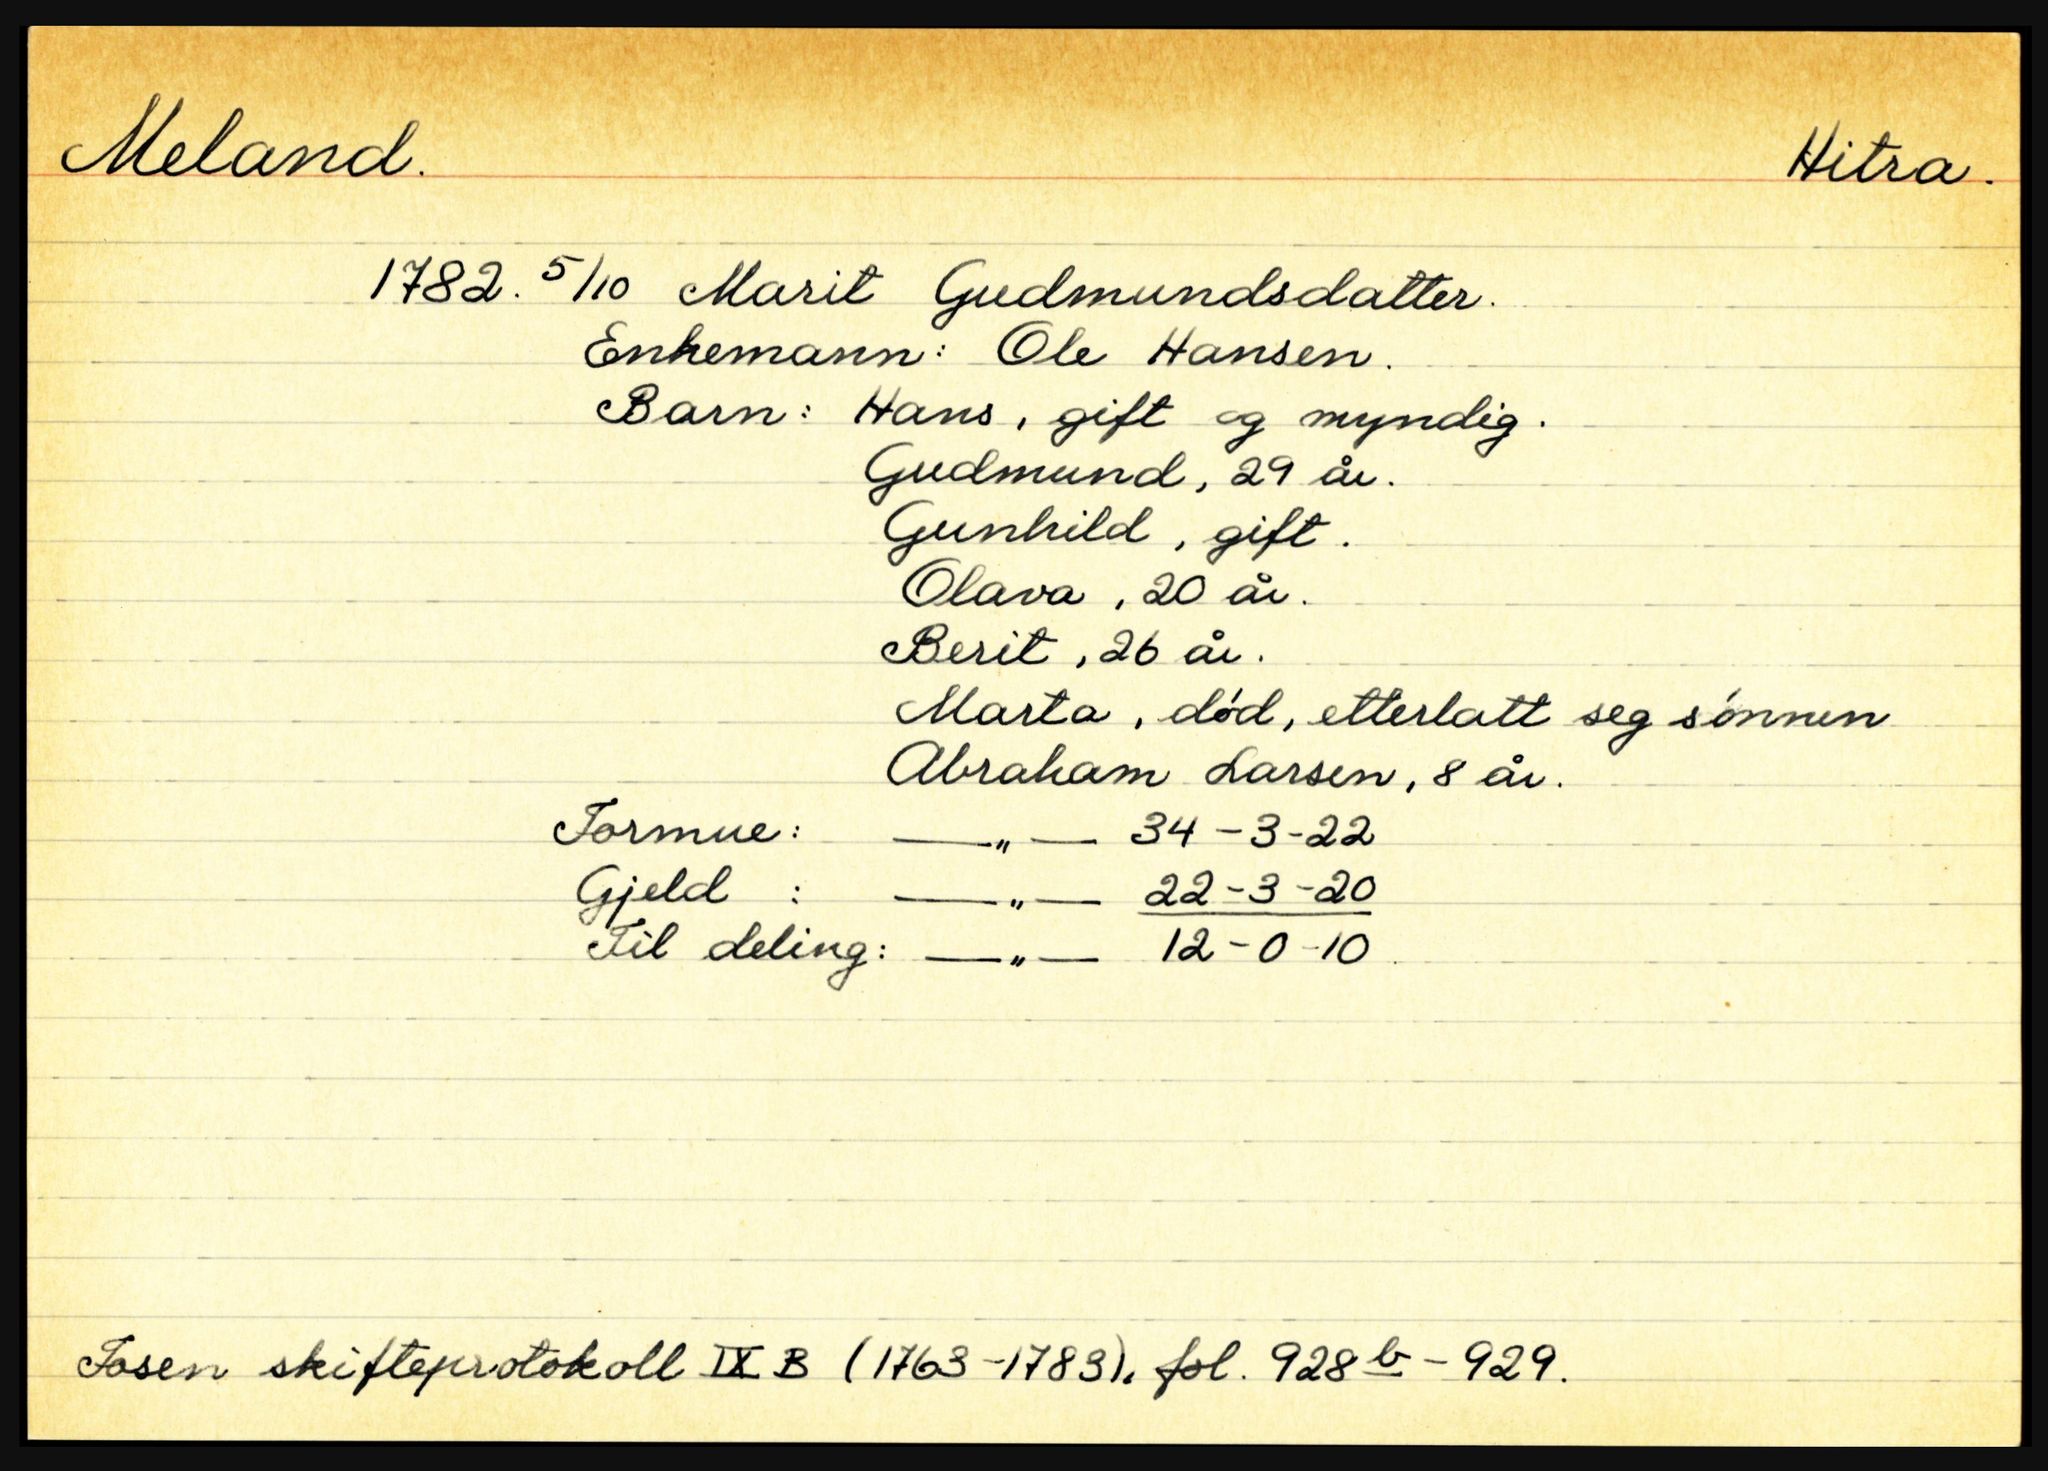 Meland. Hitra.
1782. 5/10 Marit Gudmundsdatter.
Enkemann: Ole Hansen.
Barn: Hans, gift og myndig.
Gudmund, 29 år.
Gunhild, gift.
Olava, 20 år.
Berit, 26 år.
Marta, død, etterlatt seg sønnen
Abraham Larsen, 8 år.
Formue: —„— 34-3-22
Gjeld : —„— 22-3-20
Til deling: —„— 12-0-10.
Fosen skifteprotokoll IX B (1763-1783), fol. 928b-929.